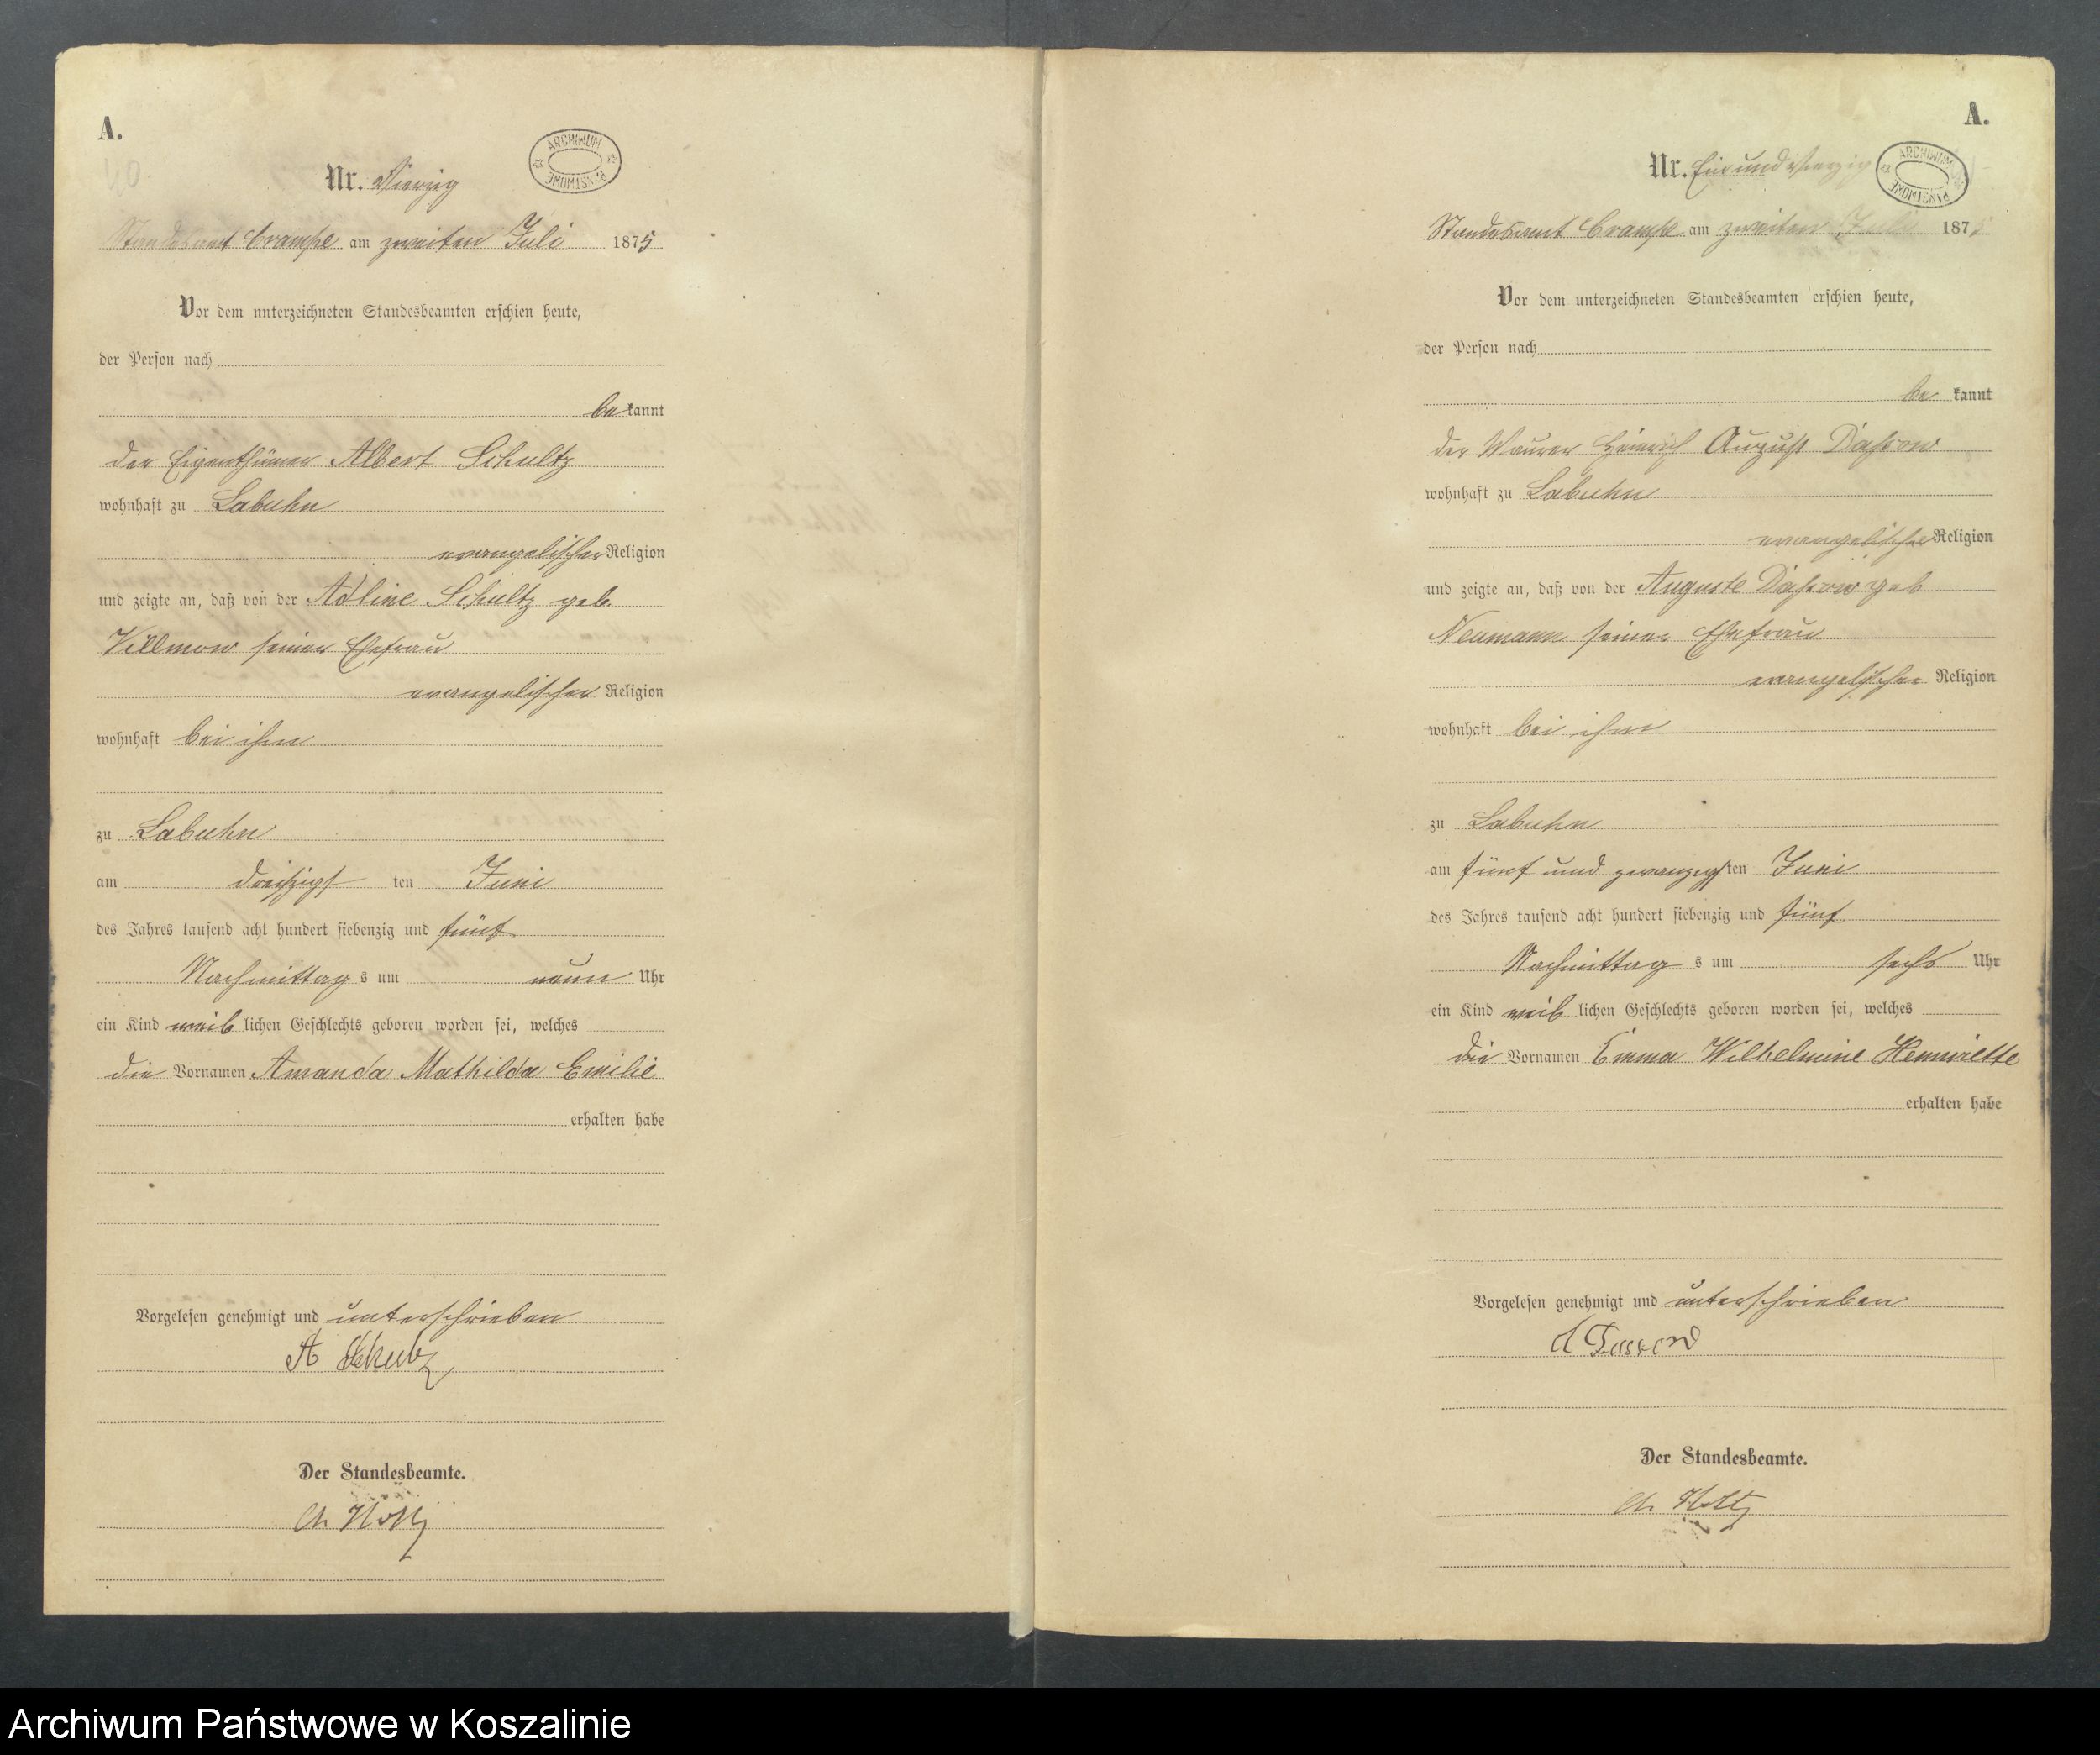 A.
40.
Nr. Vierzig
ARCHIWUM PAŃSTWOWE
Standesamt Crampe am zweiten Juli 1875
Vor dem unterzeichneten Standesbeamten erschien heute,
der Person nach
bekannt
der Eigenthümer Albert Schultz
wohnhaft zu Labuhn
evangelischer Religion
und zeigte an, daß von der Adline Schultz geb.
Villmow seiner Ehefrau
evangelischer Religion
wohnhaft bei ihm
zu Labuhn
am dreißigsten Juni
des Jahres tausend acht hundert siebenzig und fünf
Nachmittags um neun Uhr
ein Kind weiblichen Geschlechts geboren worden sei, welches
die Vornamen Amanda Mathilda Emilie
erhalten habe
Vorgelesen genehmigt und unterschrieben
A Schultz
Der Standesbeamte.
Holtz
A.
Nr. Ein und vierzig
ARCHIWUM PAŃSTWOWE
Standesamt Crampe am zweiten Juli 187
Vor dem unterzeichneten Standesbeamten erschien heute,
der Person nach
bekannt
der Maurer Heinrich August Dassow
wohnhaft zu Labuhn
evangelischer Religion
und zeigte an, daß von der Auguste Dassow geb
Neumann seiner Ehefrau
evangelischer Religion
wohnhaft bei ihm
zu Labuhn
am fünf und zwanzigsten Juni
des Jahres tausend acht hundert siebenzig und fünf
Nachmittags um sechs Uhr
ein Kind weiblichen Geschlechts geboren worden sei, welches
die Vornamen Emma Wilhelmine Hennriette
erhalten habe
Vorgelesen genehmigt und unterschrieben
Der Standesbeamte.
Holtz
Archiwum Państwowe w Koszalinie